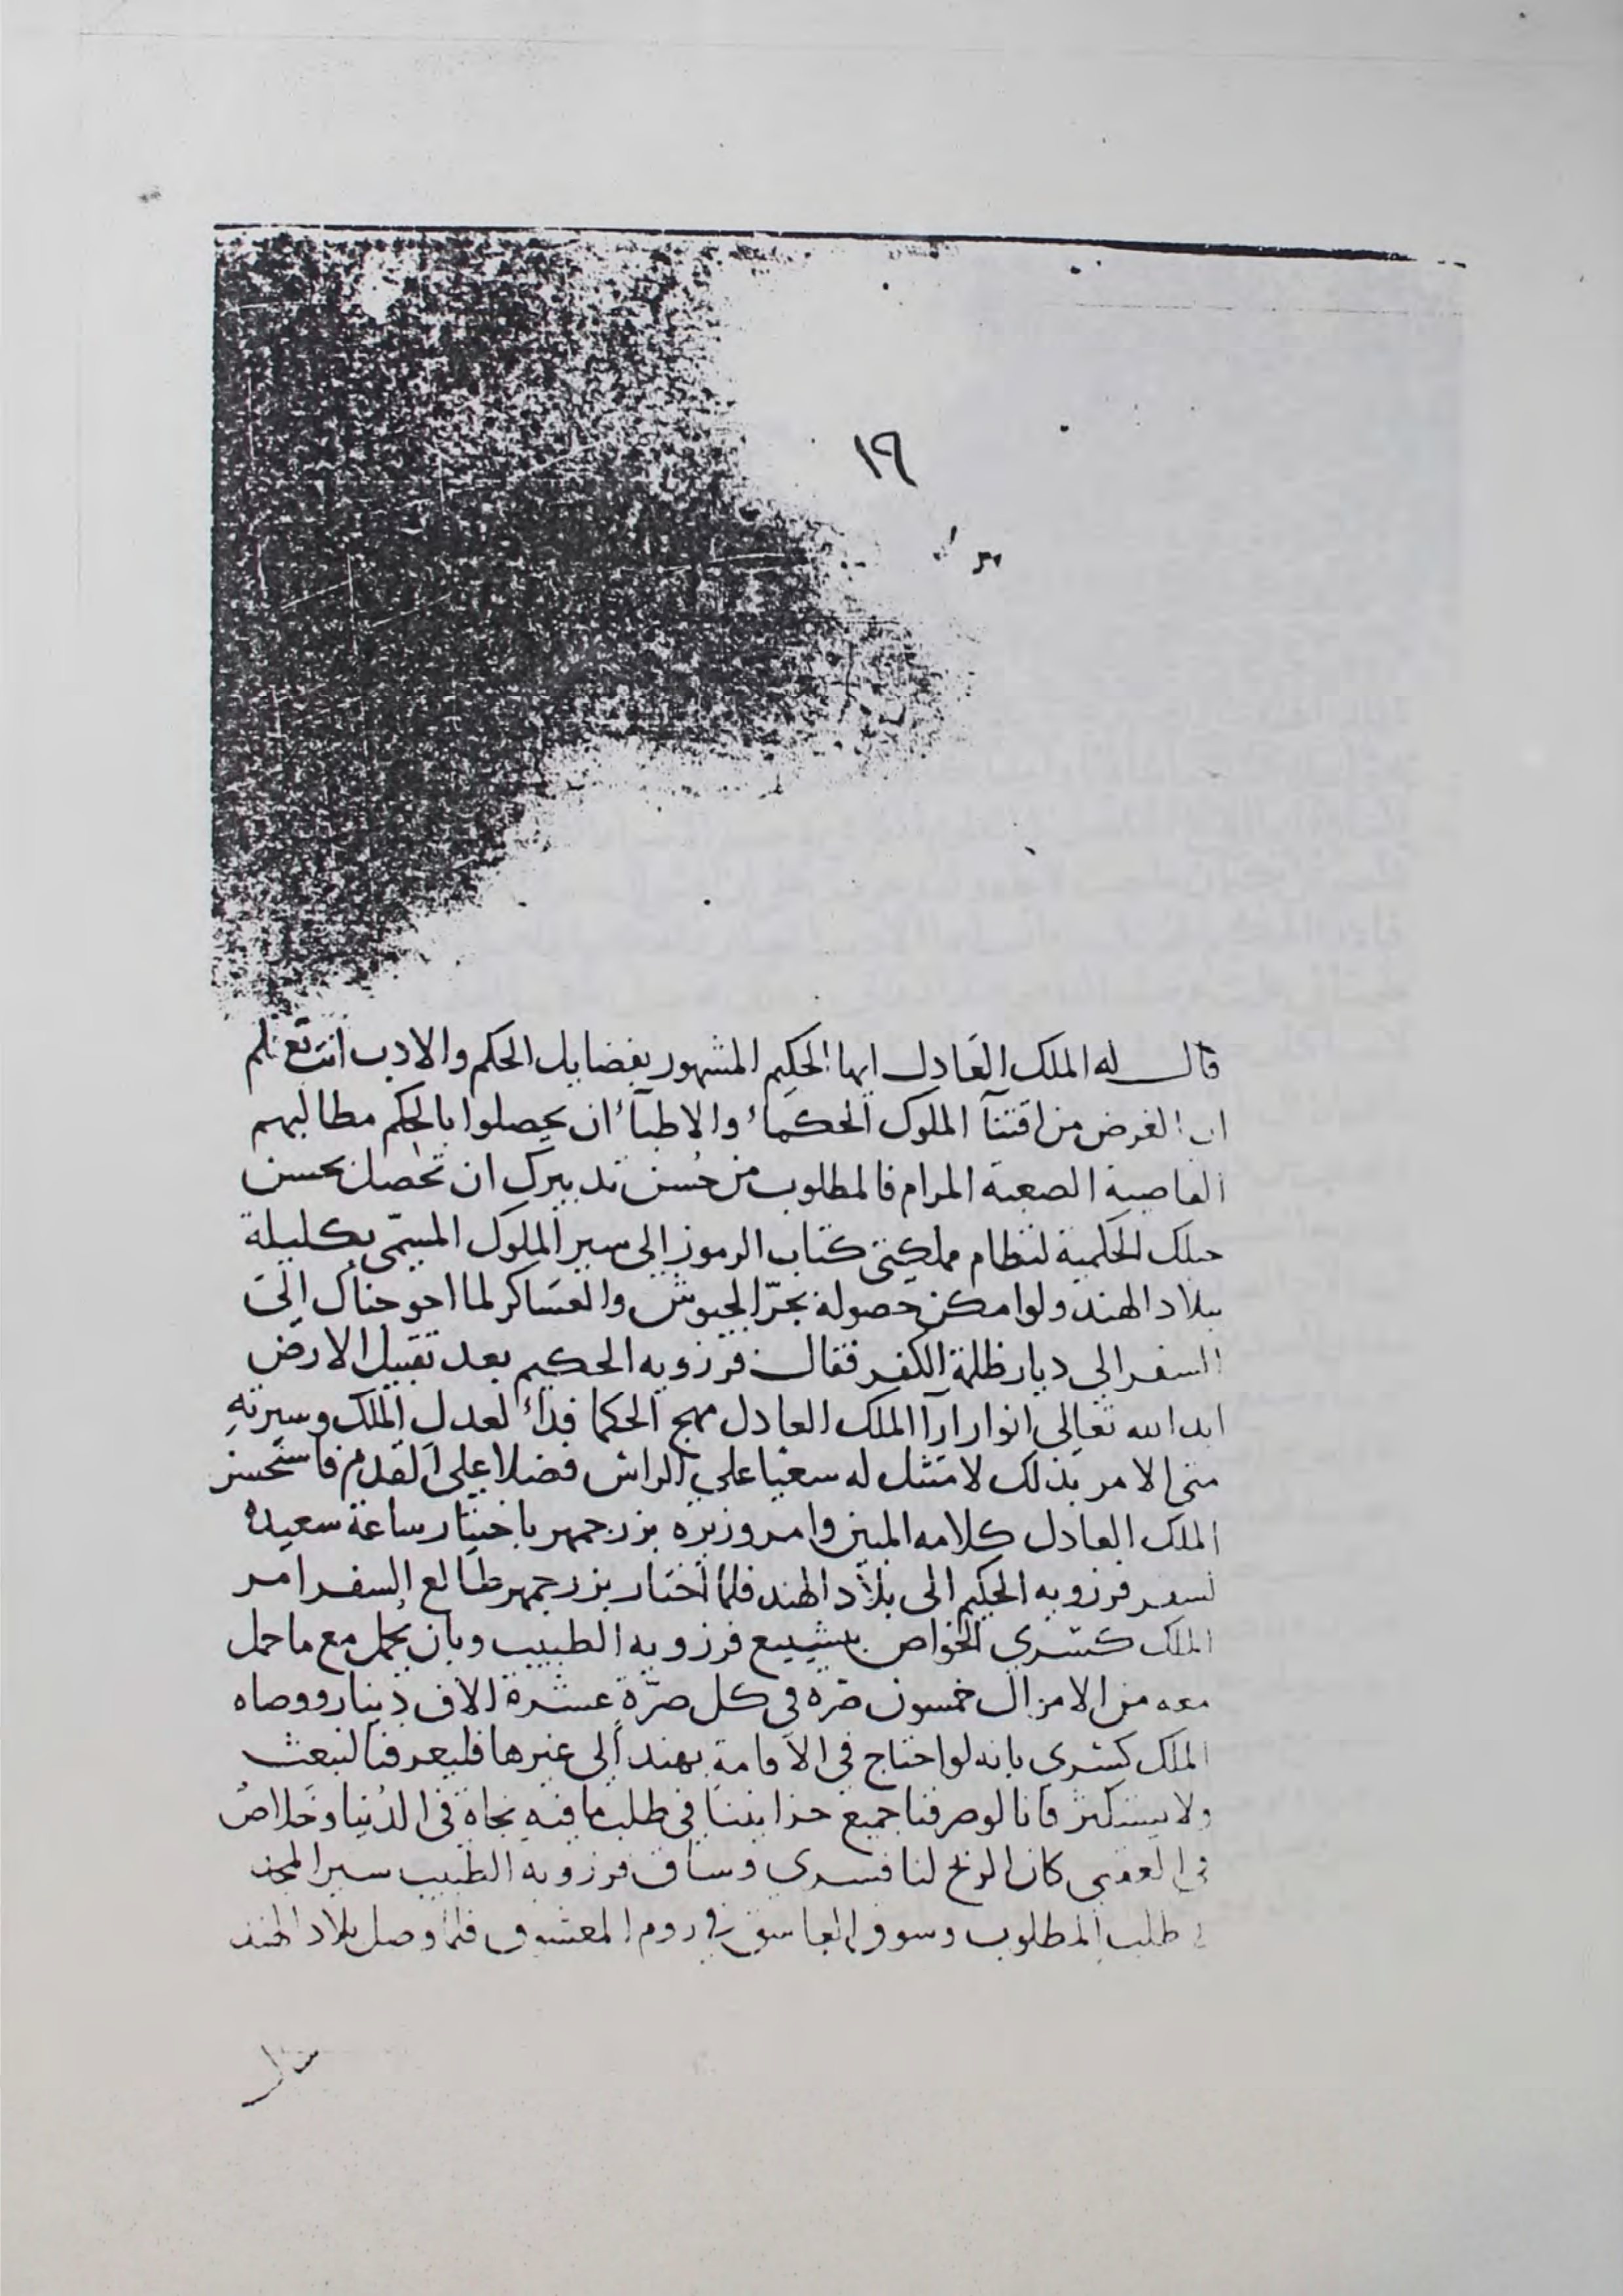 ١٩
قال له الملك العادل ايها الحكيم المشهور بفضايل الحكم والادب انت تعلم
ان الغرض من اقتنآ الملوك الحكمآء والاطبآء ان يحصلوا بالحكم مطالبهم
القاصية الصعبة المرام فالمطلوب من حسن تدبيرك ان تحصل بحسن
حيلك الحكمية لنظام مملكتي كتاب الرموز الى سير الملوك المسمّى بكليلة
ببلاد الهند ولو امكن حصوله بجرّ الجيوش والعساكر لما احوجناك الى
السفر الى ديار ظلمة الكفر فقال فرزويه الحكيم بعد تقبيل الارض
ايد الله تعالى انوار ارآ الملك العادل مهج الحكما فدآء لعدل الملك وسيرته
متى الامر بذلك لامتثل له سعيا على الراس فضلا على القدم فاستحسن
الملك العادل كلامه المبين وامر وزيره بزرجمهر باختيار ساعة سعيدة
لسفر فرزويه الحكيم الى بلاد الهند فلما اختار بزرجمهر طالع السفر امر
الملك كسرى الخواص بتشييع فرزويه الطبيب وبان يحمل مع ما حمل
معه من الاموال خمسون صرّه في كل صرّة عشرة الاف دينار ووصاه
الملك كسرى بانه لو احتاج في الاقامة بهند الى غيرها فليعرفنا لنبعث
ولا يستكثر فانا لو صرفنا جميع خزايننا في طلب ما فيه نجاة في الدنيا وخلاص
في العقبى كان الربح لنا فسرى وساق فرزويه الطبيب سير المجد
في طلب المطلوب وسوق العاشق في روم المعشوق فلما وصل بلاد الهند